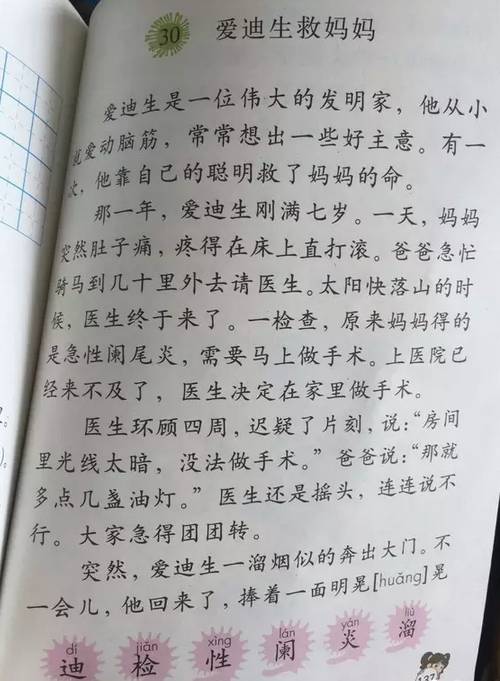 30 爱迪生救妈妈
爱迪生是一位伟大的发明家，他从小
就爱动脑筋，常常想出一些好主意。有一
次，他靠自己的聪明救了妈妈的命。
那一年，爱迪生刚满七岁。一天，妈妈
突然肚子痛，疼得在床上直打滚。爸爸急忙
骑马到几十里外去请医生。太阳快落山的时
候，医生终于来了。一检查，原来妈妈得的
是急性阑尾炎，需要马上做手术。上医院已
经来不及了，医生决定在家里做手术。
医生环顾四周，迟疑了片刻，说：“房间
里光线太暗，没法做手术。”爸爸说：“那就
多点几盏油灯。”医生还是摇头，连连说不
行。大家急得团团转。
突然，爱迪生一溜烟似的奔出大门。不
一会儿，他回来了，捧着一面明晃[huǎng]晃
dí jiǎn xìng lán yán liū
迪 检 性 阑 炎 溜
137